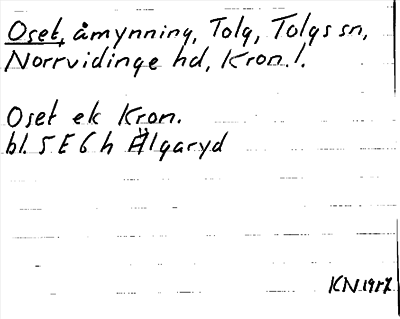 Oset, åmynning, Tolg, Tolgs sn,
Norrvidinge hd, Kron. l.
Oset ek Kron.
bl. 5 E 6 h Älgaryd
KN 1987